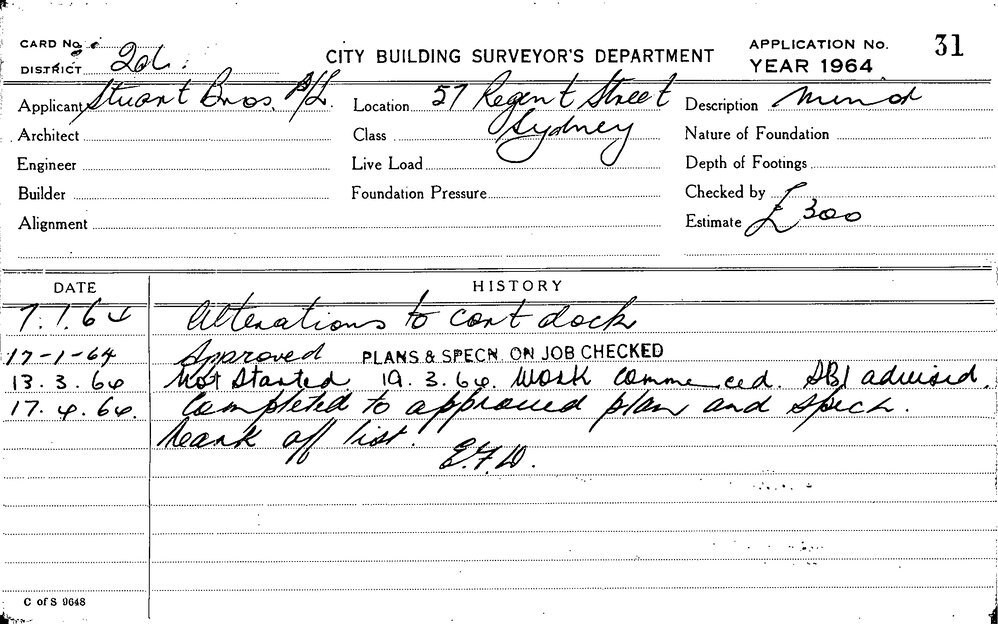 CARD No.
CITY BUILDING SURVEYOR'S DEPARTMENT
APPLICATION No. 31
DISTRICT 2d.
YEAR 1964
Applicant Stuart Bros. P/L. Location 57 Regent Street Description Minor
Architect Class Sydney Nature of Foundation
Engineer Live Load Depth of Footings
Builder Foundation Pressure Checked by
Alignment Estimate £300
DATE HISTORY
7.1.64 Alterations to cart dock
17-1-64 Approved PLANS & SPECN. ON JOB CHECKED
13.3.64 Not Started 19.3.64. Work commenced. SBI advised.
17.4.64. Completed to approved plan and specn.
Mark off list.
E.F.W.
C of S 9648